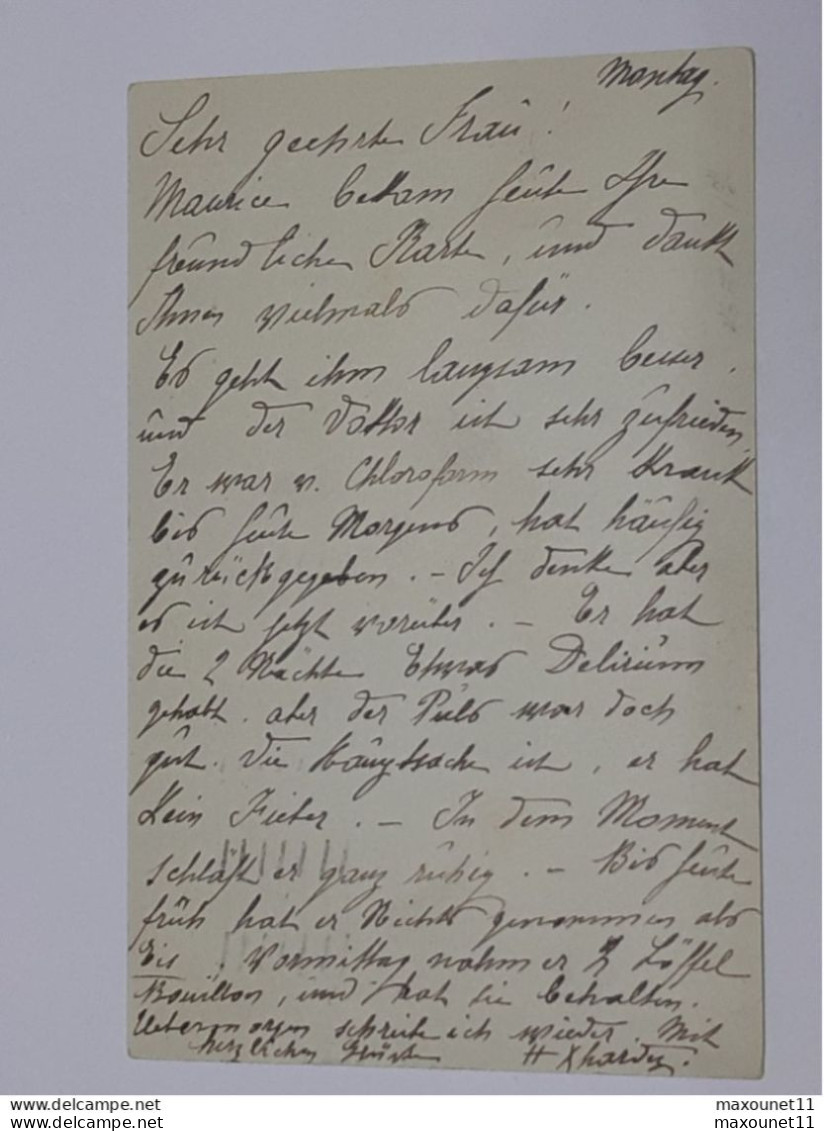 Montag.
Sehr geehrte Frau!
Maurice bekam heute Ihre
freundlichen Karte, und dankt
Ihnen vielmals dafür.
Es geht ihm langsam besser,
und der Doktor ist sehr zufrieden.
Er war v. Chloroform sehr krank
bis heute Morgens, hat häufig
zurückgegeben. - Ich denke aber
es ist jetzt vorüber. - Er hat
die 2 Nächte Etwas Delirium
gehabt. aber der Puls war doch
gut. Die Hauptsache ist, er hat
Kein Fieber. - In dem Moment
schläft er ganz ruhig. - Bis heute
früh hat er Nichts genommen als
Eis, Vormittag nahm er 2 Löffel
Bouillon, und hat sie behalten.
Uebermorgen schreibe ich wieder. Mit
herzlichen Grüßen H Xhardez.
maxounet11
www.delcampe.net
maxounet11